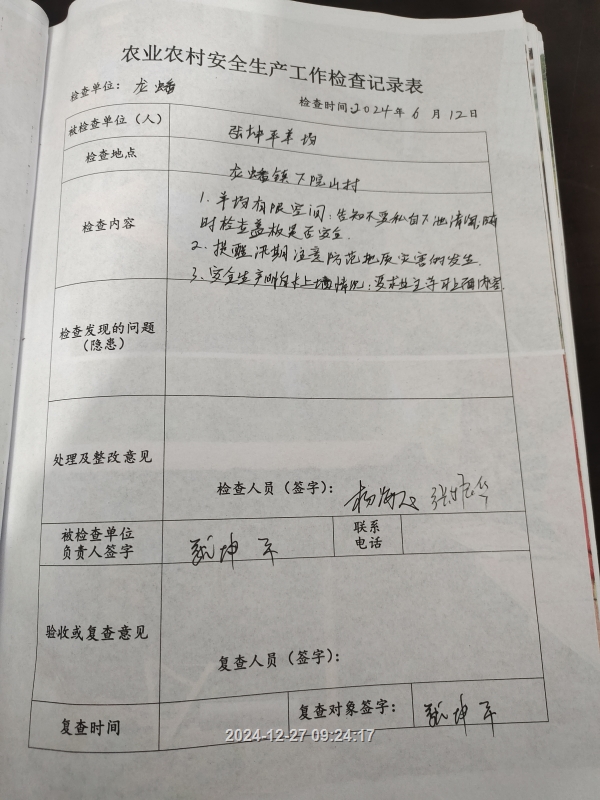 农业农村安全生产工作检查记录表
检查单位：龙蟠
检查时间：2024年6月12日
被检查单位（人） 张坤平羊场
检查地点 龙蟠镇下院山村
检查内容 1. 羊场有限空间：告知不要私自下池清淘，随
时检查盖板是否安全.
2. 提醒汛期注意防范地质灾害的发生.
3. 安全生产明白卡上墙情况：要求业主学习上面内容.
检查发现的问题
（隐患）
处理及整改意见
检查人员（签字）：
被检查单位
负责人签字 坤平
联系
电话
验收或复查意见
复查人员（签字）：
复查时间
复查对象签字： 坤平
2024-12-27 09:24:17